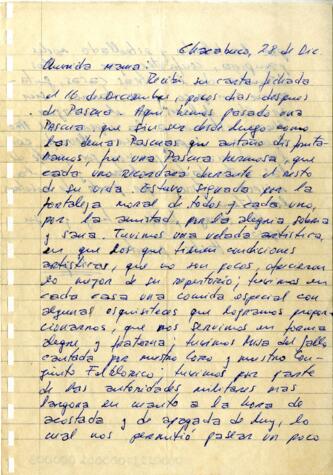 Chacabuco, 28 de Dic.
Querida mama:
Recibí su carta fechada
el 16 de Diciembre, pocos días después
de Pascua. Aquí hemos pasado una
Pascua que sin ser desde luego como
las Pascuas que antaño disfrutá-
bamos, fue una Pascua hermosa, que
cada uno recordará durante el resto
de su vida. Estuvo signada por la
fortaleza moral de todos y cada uno,
por la amistad, por la alegría
y sana. Tuvimos una velada artística,
en que los que tienen condiciones
artísticas, que no son pocos, ofrecieron
lo mejor de su repertorio; tuvimos en
cada casa una comida especial con
algunas exquisiteces que logramos propor-
cionarnos, que nos servimos en forma
alegre, y fraterna; tuvimos Misa del Gallo
cantada por nuestro Coro y nuestro Con-
junto Folklórico; tuvimos por parte
de las autoridades militares mas
largona en cuanto a la hora de
acostada y de apagada de luz, lo
cual nos permitió pasear un poco